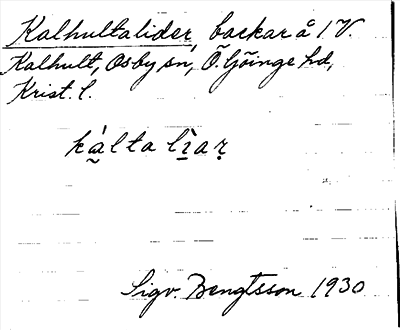 Kalhultalider, backar å 1 V.
Kalhult, Osby sn, Ö. Göinge hd,
Krist. l.
kàltalìar
Sigv. Bengtsson 1930